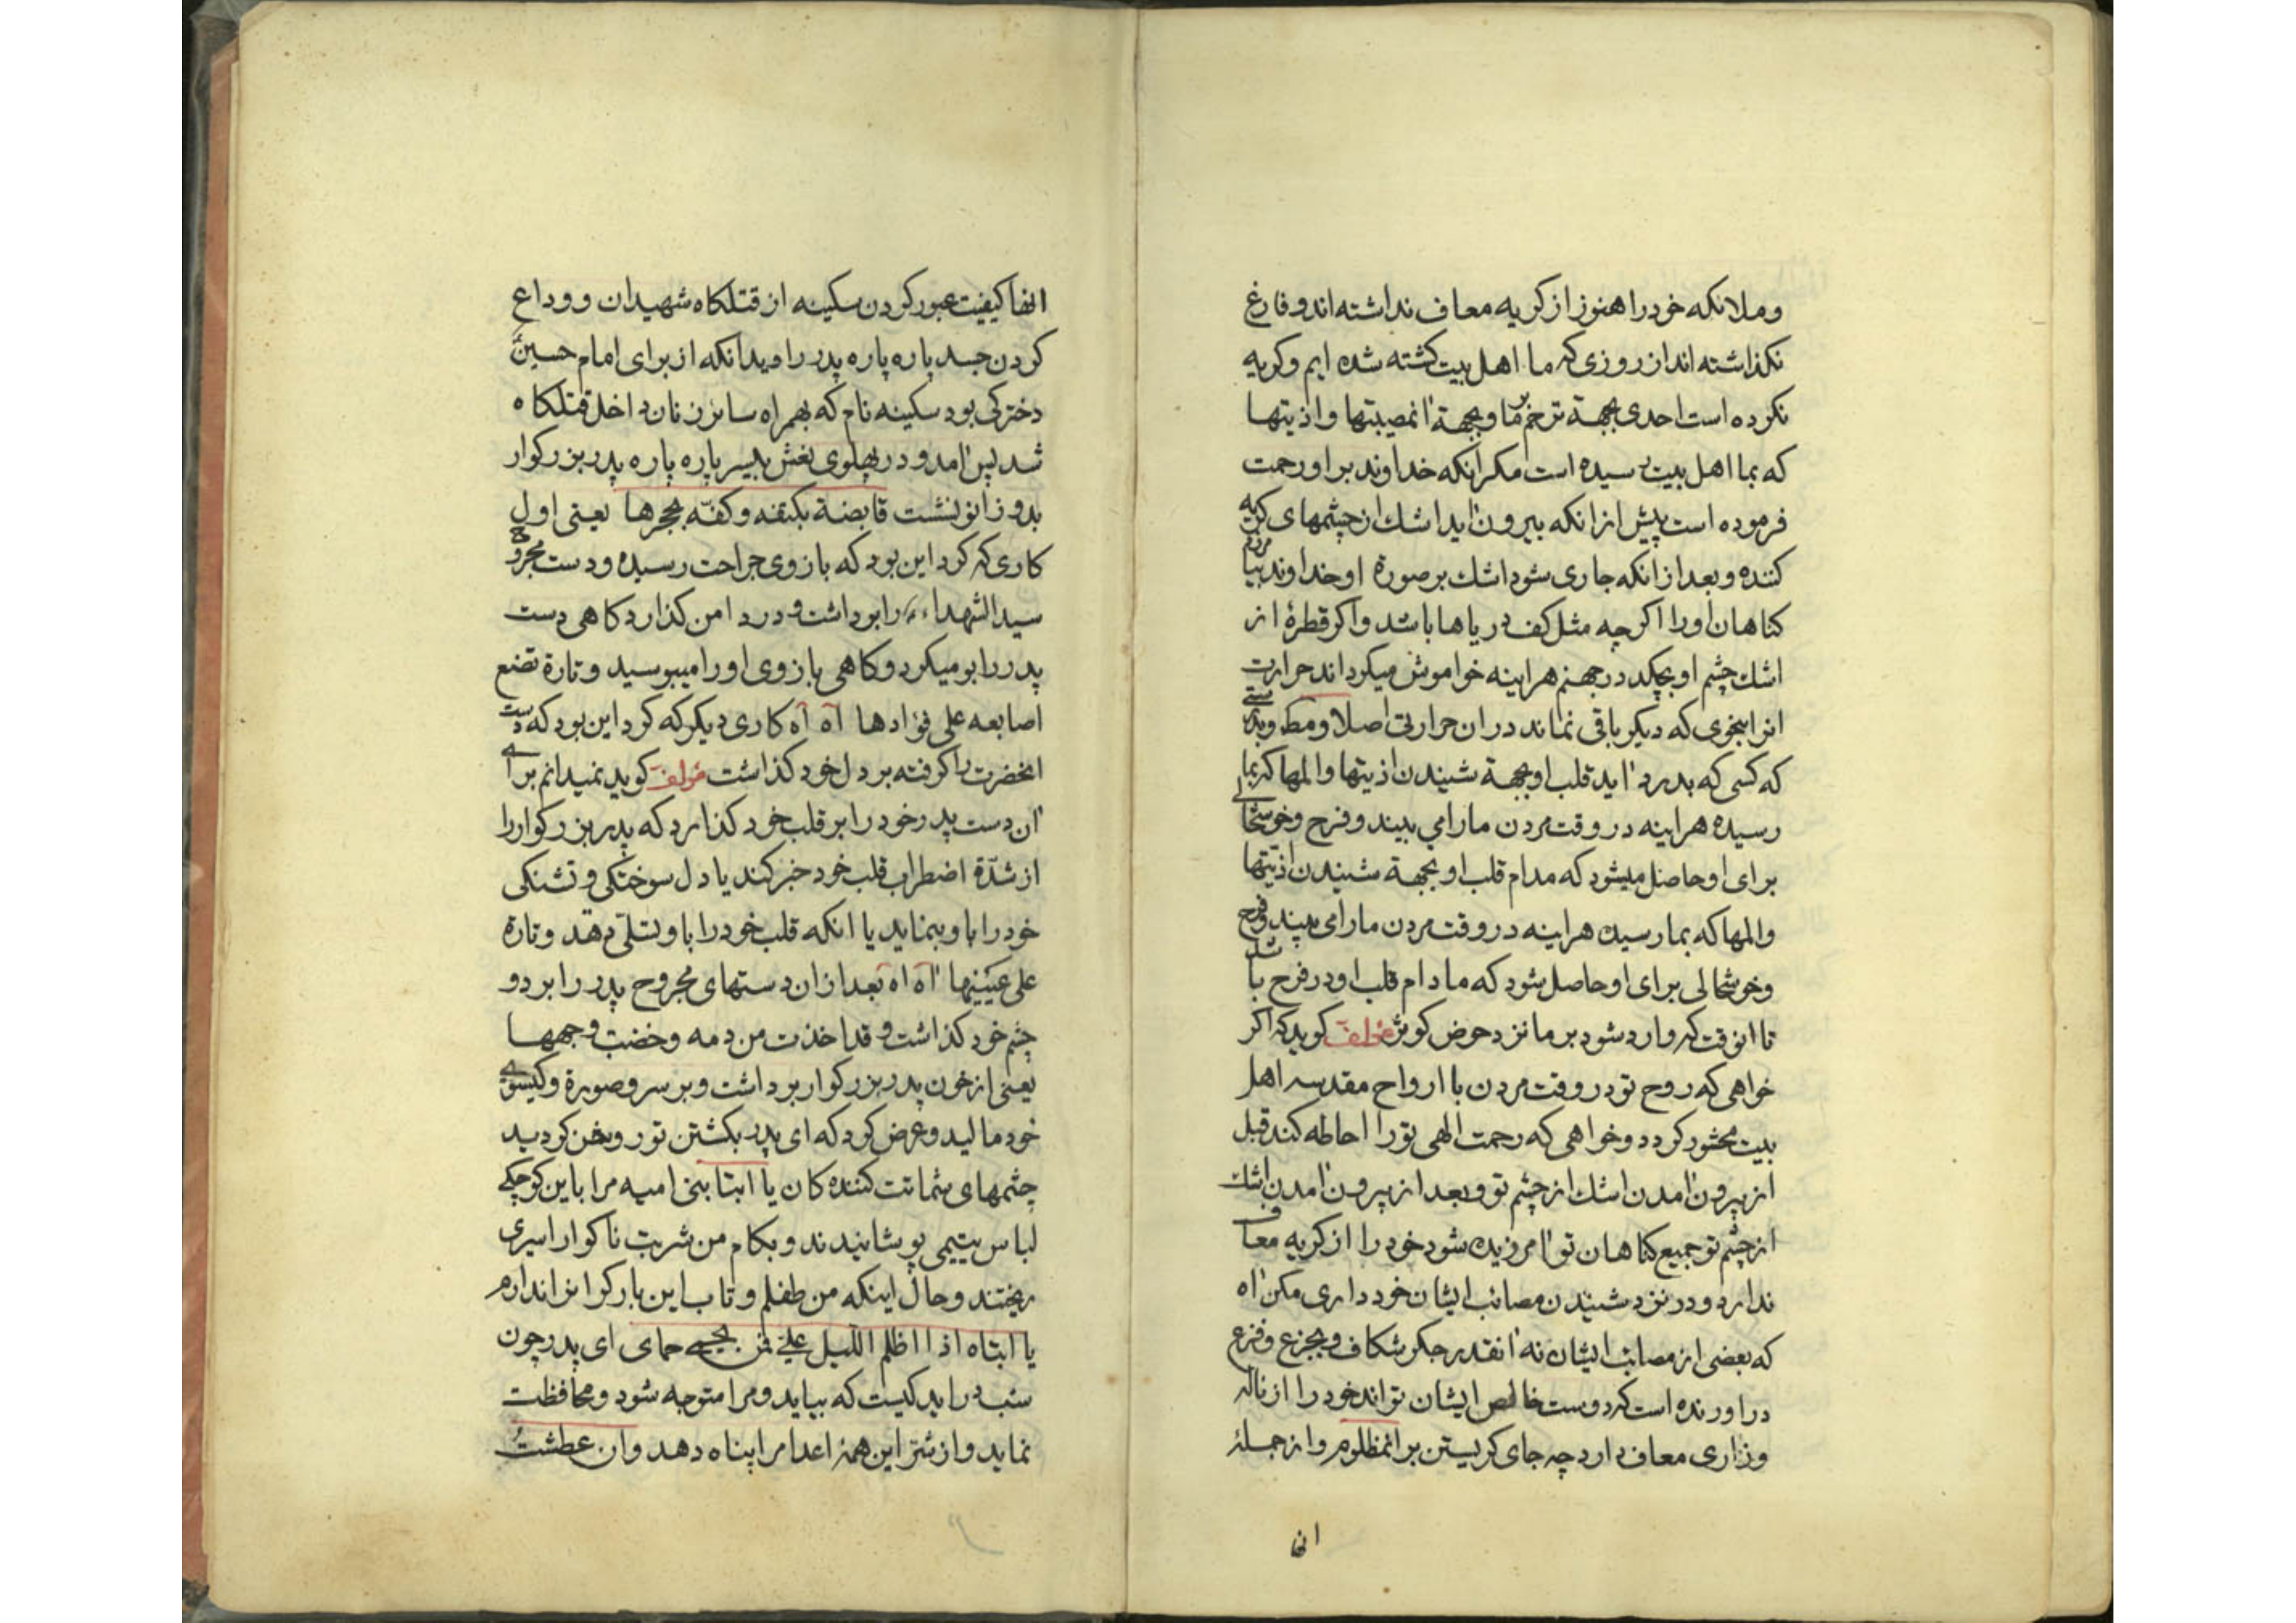 وملائکه خود را هنوز از کریه معاف نداشته اند و فارغ
نکذاشته اند از روزی که ما اهل بیت کشته شده ایم و کریه
نکرده است احدی بجهة ترحم بر ما و بجهة آنمصیبتها و اذیتها
که بما اهل بیت رسیده است مکر آنکه خداوند بر او رحمت
فرموده است پیش از انکه بیرون آید اشك از چشمهای کریه
کننده و بعد از انکه جاری شود اشك بر صورة او خداوند بیامرزد
کناهان او را اکرچه مثل کف دریاها باشد و اکر قطرۀ از
اشك چشم او بچکد در جهنم هراینه خواموش میکرداند حرارت
انرا بنحوی که دیکر باقی نماند در ان حرارتی اصلا و مط و بدرستی
که کسی که بدرد آید قلب او بجهة شنیدن اذیتها و المها که بما
رسیده هراینه در وقت مردن ما را می بیند و فرح و خوشحالی
برای او حاصل میشود که مدام قلب او بجهة شنیدن اذیتها
و المها که بما رسیده هراینه در وقت مردن ما را می بیند و فرح
و خوشحالی برای او حاصل شود که مادام قلب او در فرح باشد
تا انوقت که وارد شود بر ما نزد حوض کوثر مؤلف کوید که اکر
خواهی که روح تو در وقت مردن با ارواح مقدسه اهل
بیت محشور کردد و خواهی که رحمت الهی تو را احاطه کند قبل
از بیرون آمدن اشك از چشم تو و بعد از بیرون آمدن اشك
از چشم تو جمیع کناهان تو آمرزیده شود خود را از کریه معاف
ندارد و در نزد شنیدن مصائب ایشان خود داری مکن آه
که بعضی از مصائب ایشان نه آنقدر جکر شکاف و بجزع و فزع
دراورنده است که دوست خالص ایشان تواند خود را از ناله
و زاری معاف دارد چه جای کریستن بر انمظلوم و از جمله
انها
انها کیفیت عبور کردن سکینه از قتلکاه شهیدان و وداع
کردن جسد پاره پاره پدر را و بدانکه از برای امام حسین
دخترکی بود سکینه نام که بهمراه سائر زنان داخل قتلکاه
شد پس آمد و در پهلوی نعش بیسر پاره پاره پدر بزرکوار
بدو زانو نشست قابضة بکتفه و کفّه بحجرها یعنی اول
کاری که کرد این بود که بازوی جراحت رسیده و دست مجروح
سید الشهداء را بر داشت و در دامن کذارد کاهی دست
پدر را بو میکرد و کاهی بازوی او را میبوسید و تارة تضع
اصابعه علی فؤادها آه آه کاری دیکر که کرد این بود که دست
انحضرت را کرفته بر دل خود کذاشت مؤلف کوید نمیدانم برای
آن دست پدر خود را بر قلب خود کذارد که پدر بزرکوار را
از شدّة اضطراب قلب خود خبر کند یا دل سوختکی و تشنکی
خود را باو بنماید یا انکه قلب خود را باو تسلّی دهد و تارة
علی عینیها آه آه بعد از ان دستهای مجروح پدر را بر دو
چشم خود کذاشت و قد اخذت من دمه و خضبت وجهها
یعنی از خون پدر بزرکوار برداشت و بر سر و صورة و کیسوی
خود مالید و عرض کرد که ای پدر بکشتن تو روشن کردید
چشمهای شماتت کننده کان یا ابتا بنی امیه مرا باین کوچکی
لباس یتیمی پوشانیدند و بکام من شربت ناکوار اسیری
ریختند و حال اینکه من طفلم و تاب این بار کران ندارم
یا ابتاه اذا اظلم اللیل علیّ فمن یحمی حمای ای پدر چون
شب دراید کیست که بیاید و مرا متوجه شود و محافظت
نماید و از شرّ این همۀ اعدا مرا پناه دهد وان عطشتُ